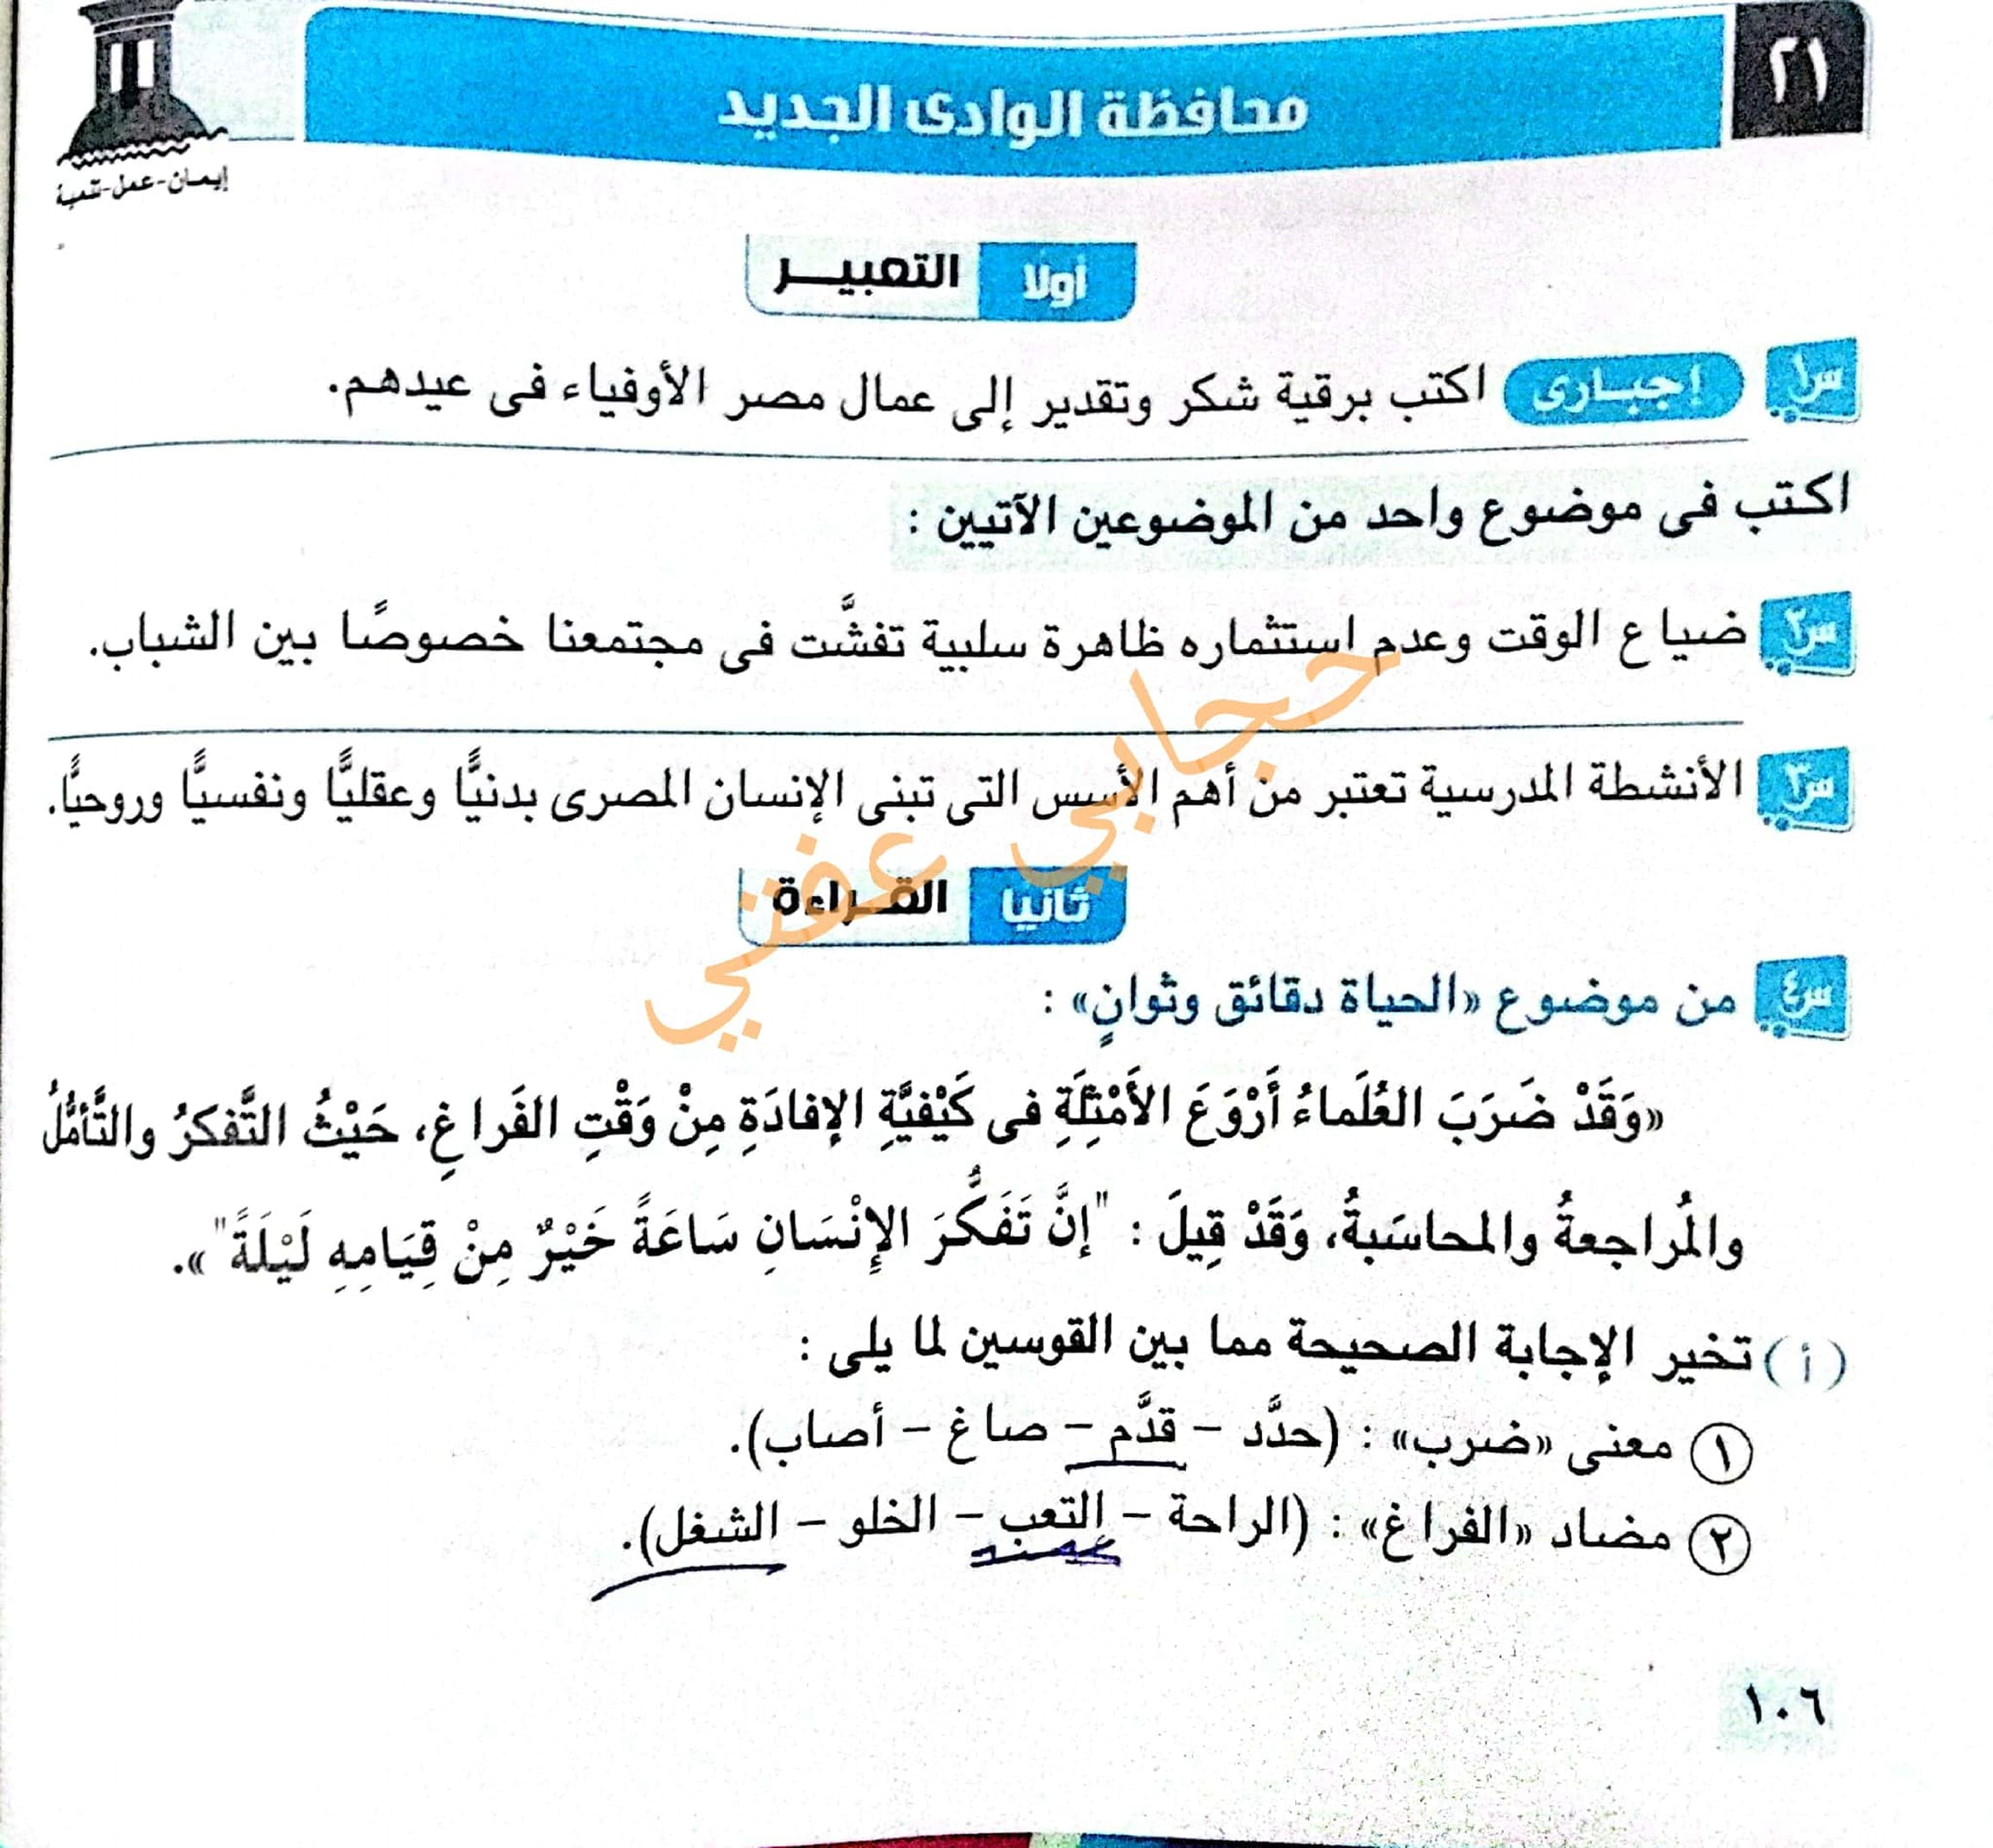 ٢١
محافظة الوادى الجديد
إيمـان-عمل-تنمية
أولا التعبيـــر
س١ إجبـارى اكتب برقية شكر وتقدير إلى عمال مصر الأوفياء فى عيدهم.
اكتب فى موضوع واحد من الموضوعين الآتيين :
س٢ ضياع الوقت وعدم استثماره ظاهرة سلبية تفشَّت فى مجتمعنا خصوصًا بين الشباب.
س٣ الأنشطة المدرسية تعتبر من أهم الأسس التى تبنى الإنسان المصرى بدنيًّا وعقليًّا ونفسيًّا وروحيًّا.
حجابي عفتي
ثانيا القــراءة
س٤ من موضوع «الحياة دقائق وثوانٍ» :
«وَقَدْ ضَرَبَ العُلَماءُ أَرْوَعَ الأَمْثِلَةِ فى كَيْفيَّةِ الإفادَةِ مِنْ وَقْتِ الفَراغِ، حَيْثُ التَّفكرُ والتَّأمُّلُ
والمُراجعةُ والمحاسَبةُ، وَقَدْ قِيلَ : "إنَّ تَفَكُّرَ الإِنْسَانِ سَاعَةً خَيْرٌ مِنْ قِيَامِهِ لَيْلَةً"».
(أ) تخير الإجابة الصحيحة مما بين القوسين لما يلى :
١ معنى «ضرب» : (حدَّد – قدَّم – صاغ – أصاب).
٢ مضاد «الفراغ» : (الراحة – التعب – الخلو – الشغل).
١٠٦